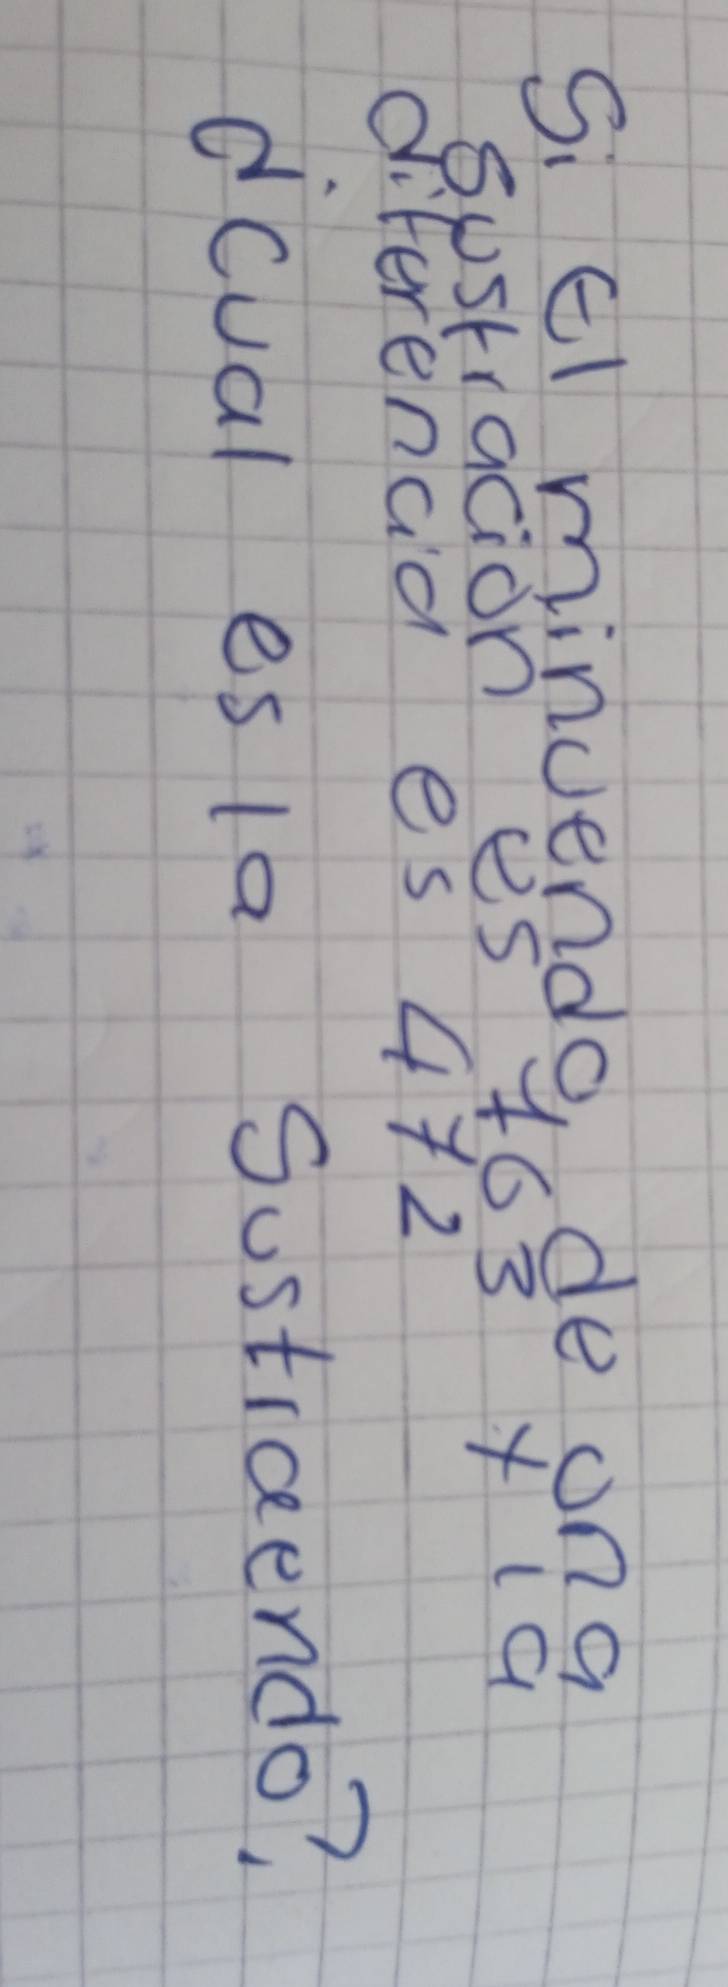 Si El minuendo de una
sustracción es 763 y la
diferencia es 472
¿cual es la sustraendo?